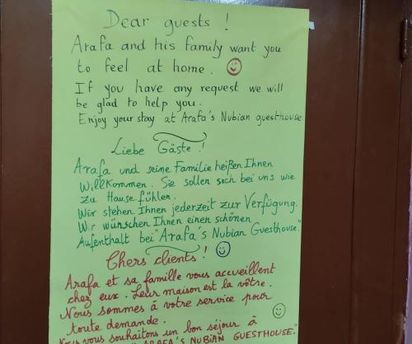 Dear guests !
Arafa and his family want you
to feel at home.
If you have any request we will
be glad to help you.
Enjoy your stay at Arafa's Nubian guesthouse
Liebe Gäste !
Arafa und seine Familie heißen Ihnen
Willkommen. Sie sollen sich bei uns wie
zu Hause fühlen.
Wir stehen Ihnen jederzeit zur Verfügung.
Wir wünschen Ihnen einen schönen
Aufenthalt bei "Arafa's Nubian Guesthouse"
Chers clients !
Arafa et sa famille vous accueillent
chez eux. Leur maison est la vôtre.
Nous sommes à votre service pour
toute demande.
Nous vous souhaitons un bon séjour à
"ARAFA'S NUBIAN GUESTHOUSE".